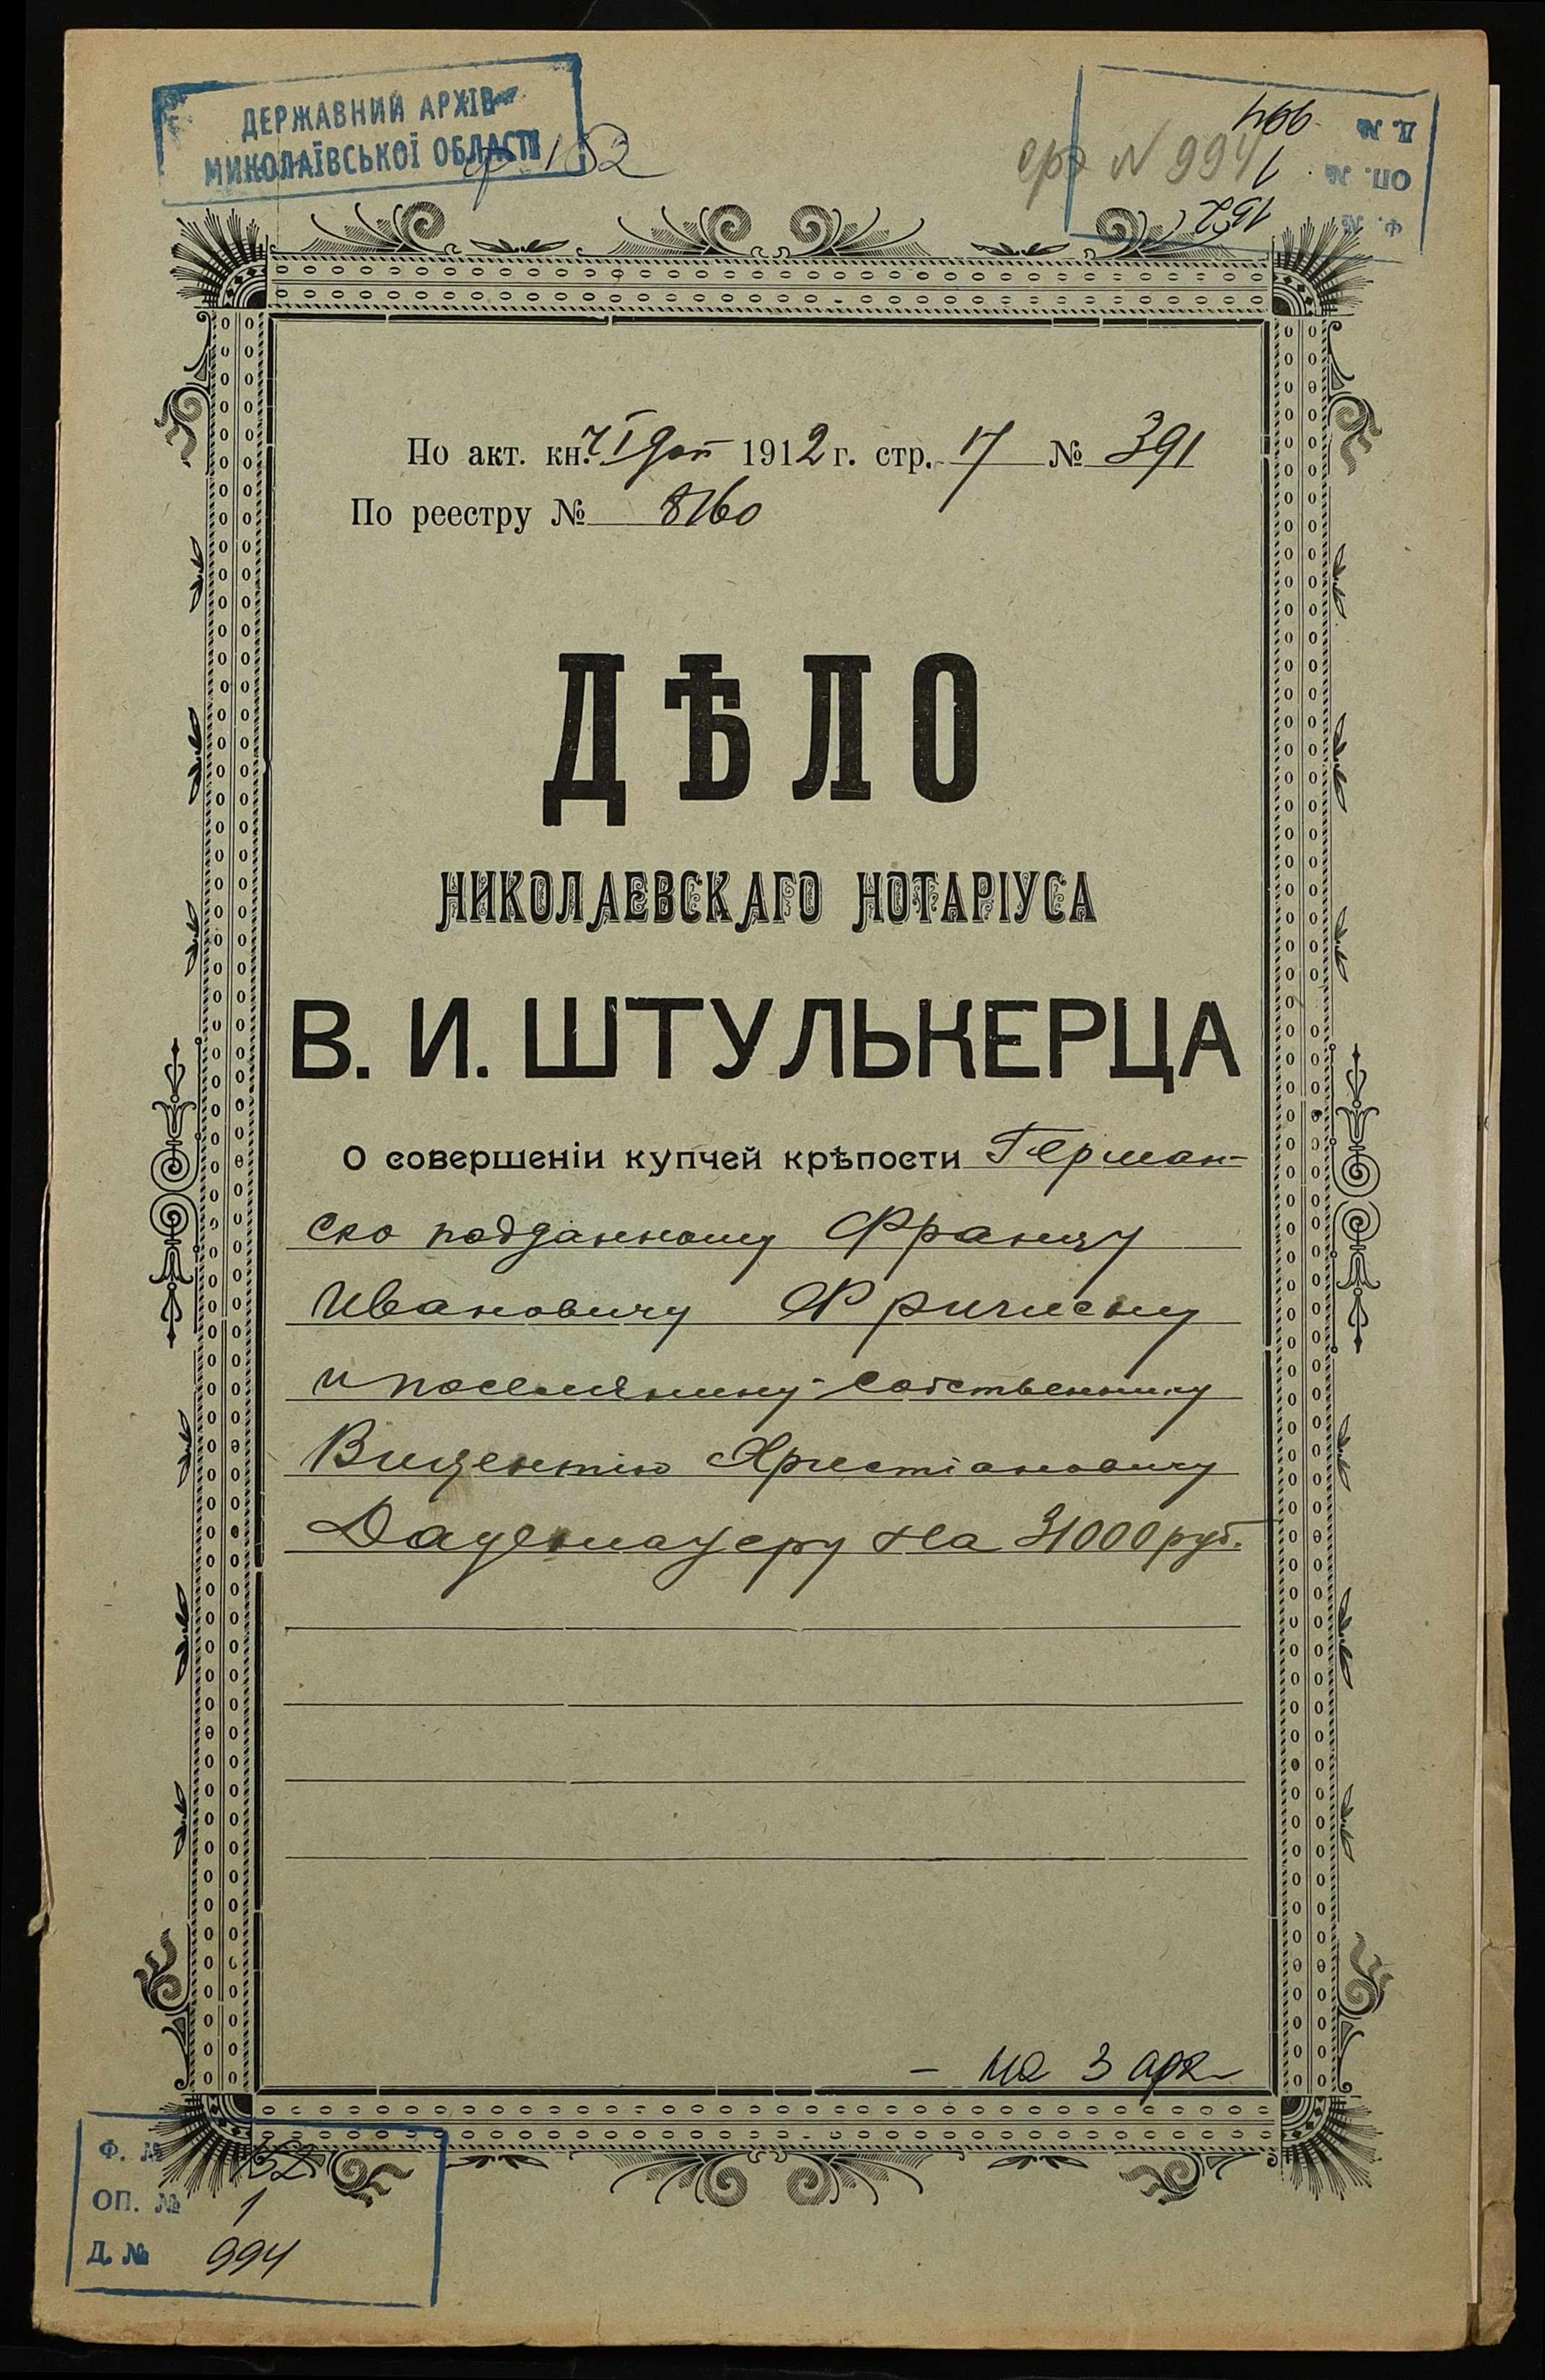 ДЕРЖАВНИЙ АРХІВ
МИКОЛАЇВСЬКОЇ ОБЛАСТІ
ф 152
Ф. № 152
ОП. № 1
Д. № 994
№ 994
По акт. кн. ч I доп 1912 г. стр. 17 № 391
По реестру № 8160
ДѢЛО
НИКОЛАЕВСКАГО НОТАРІУСА
В. И. ШТУЛЬКЕРЦА
О совершеніи купчей крѣпости Герман-
ско подданному Францу
Ивановичу
и поселянину-собственнику
Викентію Христіановичу
на 31000 руб.
– на 3 арк
Ф. № 152
ОП. № 1
Д. № 994